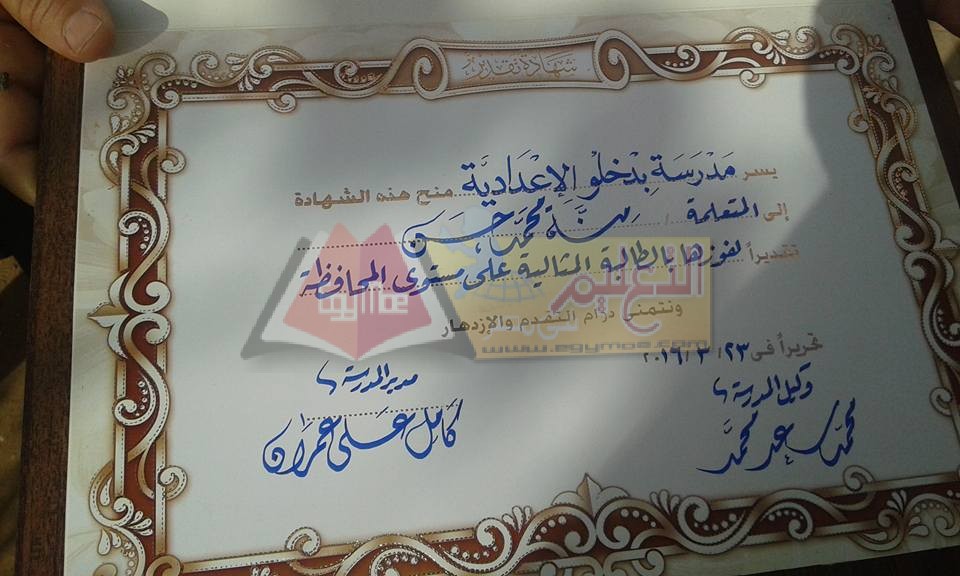 شهادة تقدير
يسر مَدْرَسَة بِدَخلُو الإِعْدَادِيَّة منح هذه الشهادة
إلى المتعلمة / منَّة محمد حسن
تقديراً لفوزها بالطالبة المثالية على مستوى المحافظة
ونتمنى دوام التقدم والإزدهار
تحريراً في ٢٣/ ٣/ ٢٠١٦
وكيل المدرسة
مدير المدرسة
محمد سعد محمَّد
كامل على عمران
التعليم
في مصر
www.egymoe.com